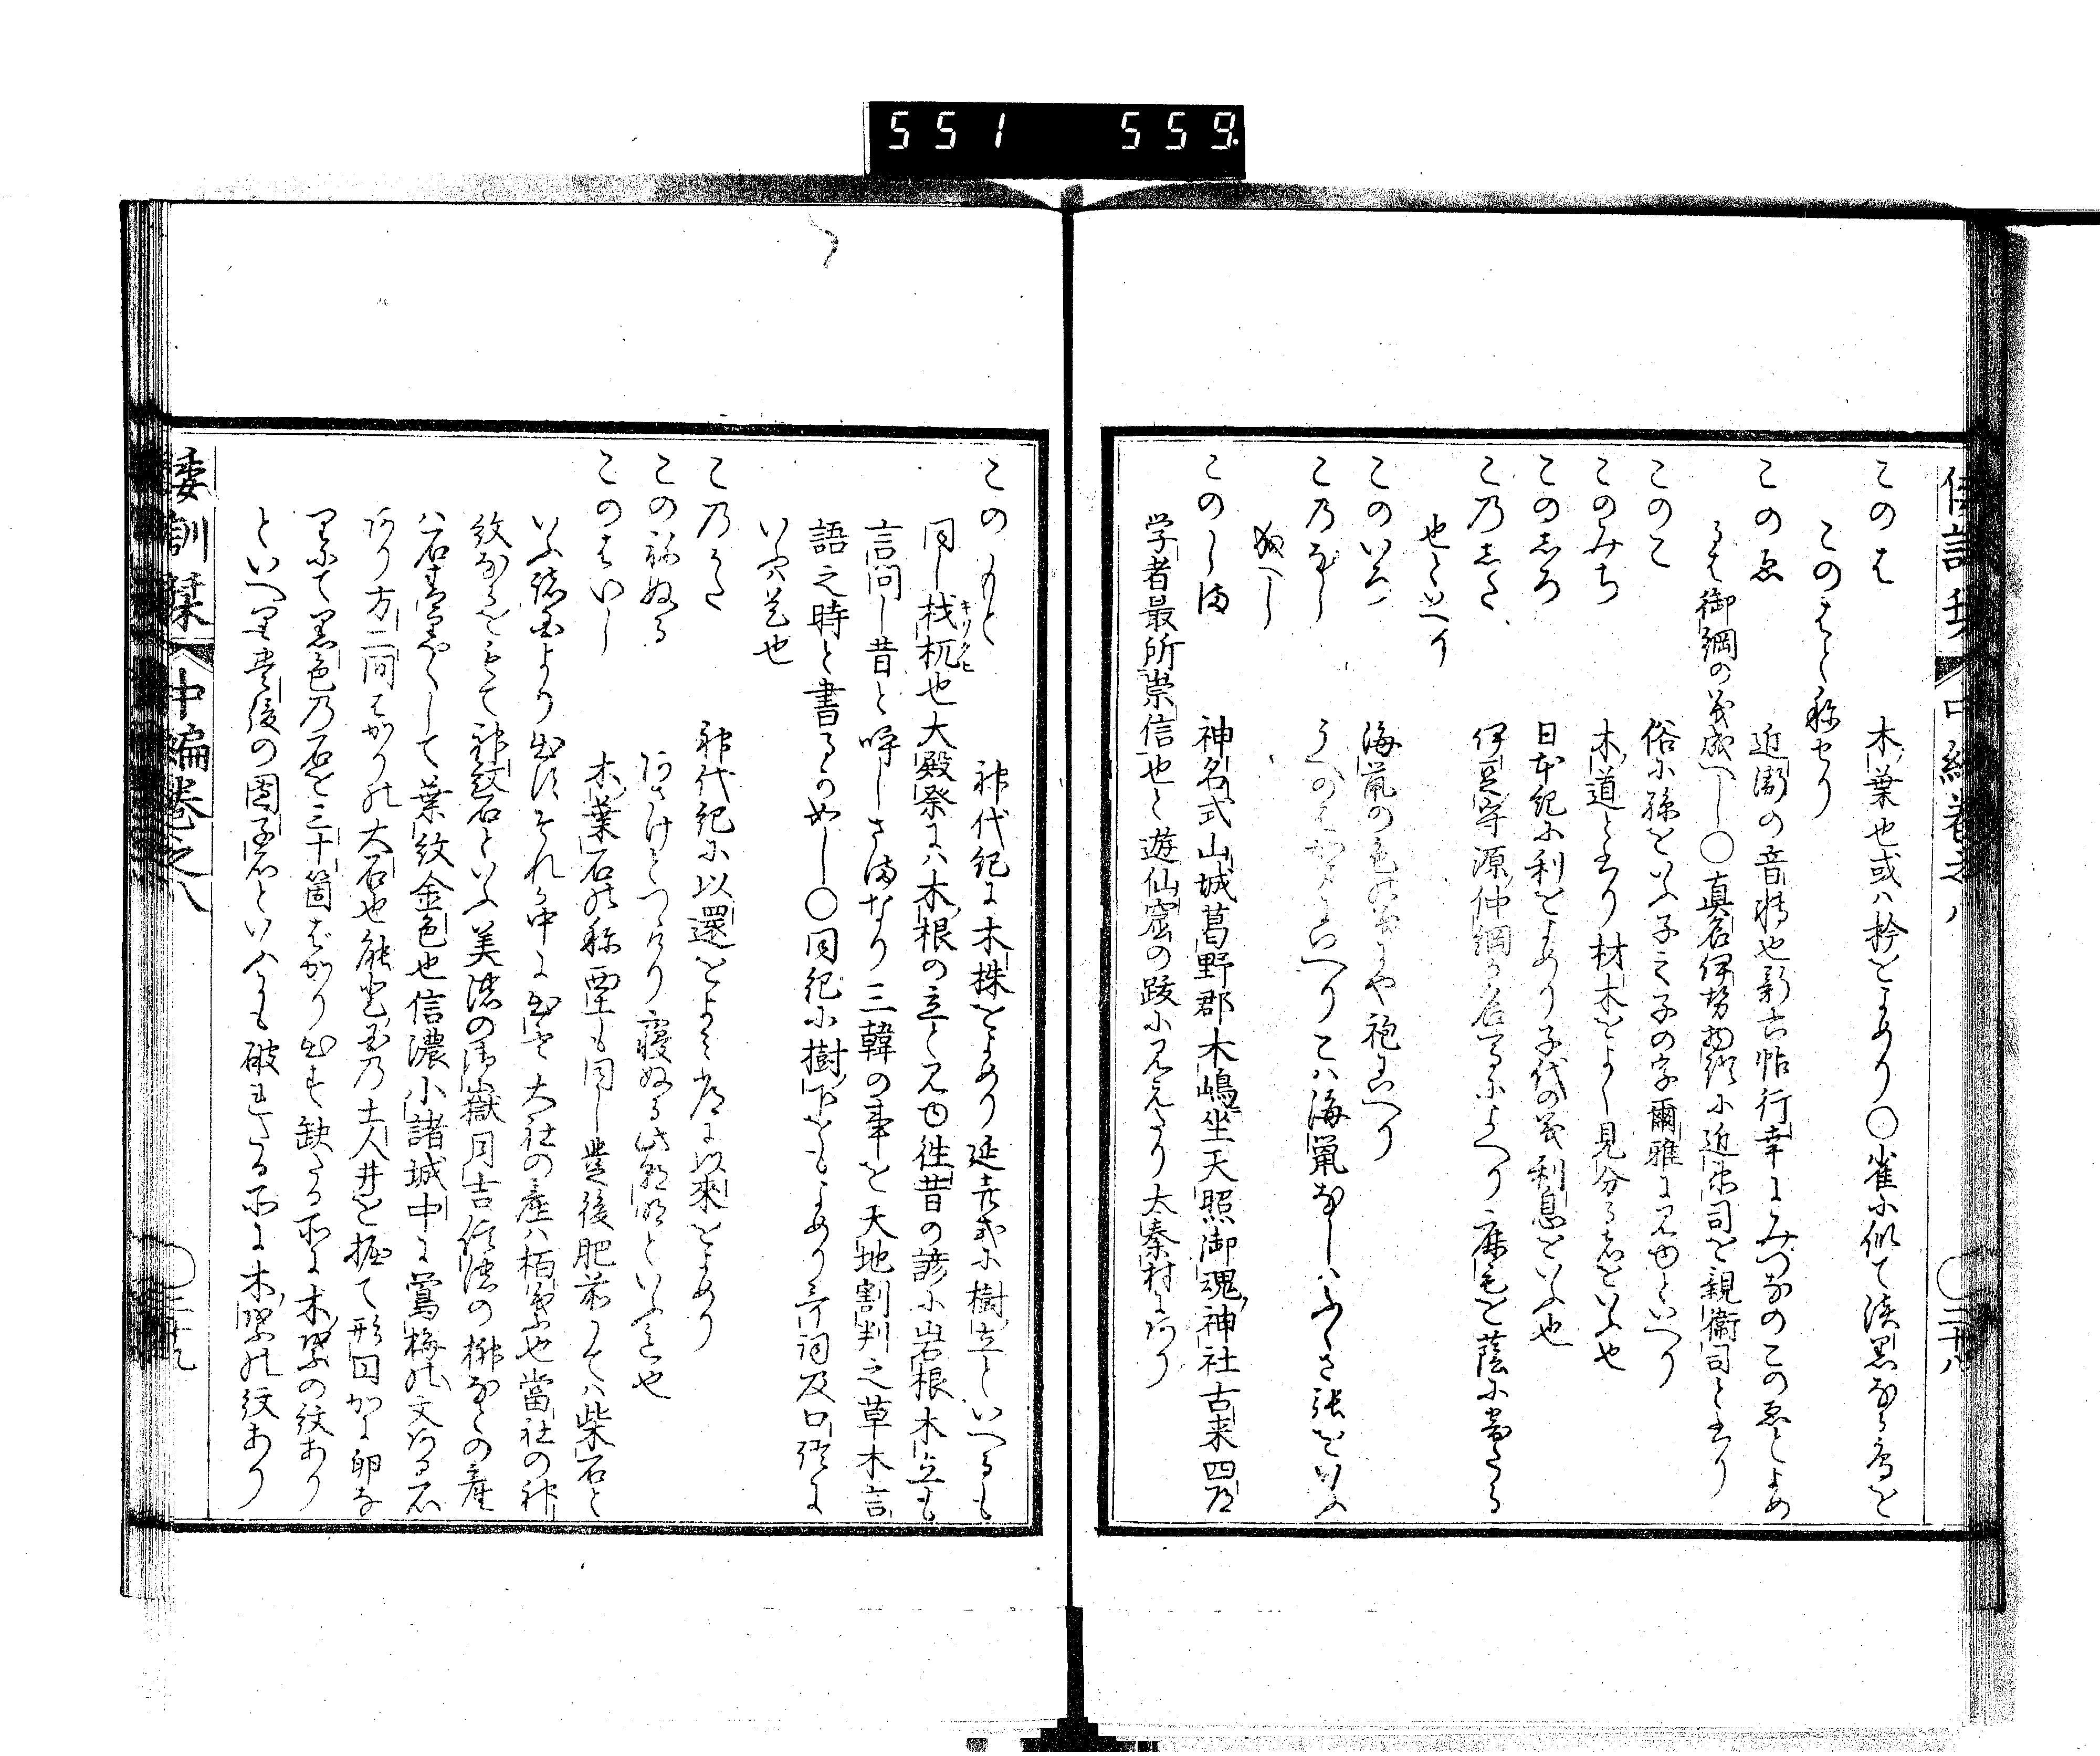 551 559
このは 木葉也或ハ衿をよめり〇雀に似て淡黒なる鳥を
このはと称せり
このゑ 近衛の音轉也新古帖行幸にみづなのこのゑとよめ
るは御綱の義成へし〇真名伊勢物語に近衛司を親衛司と書り
このこ 俗に孫をいふ子之子の字爾雅に見ゆといへり
このみち 木道と書り材木をよく見分る者をいふ也
このしろ 日本紀に利をよめり子代の義利息をいふ也
こ乃した 伊豆守源仲綱か名馬によへり鹿毛を蔭に当たる
也といへり
このいろ 海鼠の色の義にや袍にいへり
こ乃なし
このしま 神名式山城葛野郡木嶋坐天照御魂神社古来四方
学者最所崇信也と遊仙窟の跋に見えたり太秦村にあり
倭訓栞 中編巻之八 〇二十八
このもと 神代紀に木株をよめり延喜式に樹立といへるも
同し杌也大殿祭にハ木根の立と見ゆ往昔の諺に岩根木立も
キリクヒ
言問し昔と呼しさまなり三韓の事を天地割判之草木言
語之時と書るか如し〇同紀に樹下をもよめり斉詞及口語に
いふハ是也
こ乃かた 神代紀に以還をよみ常に以来をよめり
この称ぬる あさけとつゝけり寝ぬる此朝明といふ意也
このはいし 木葉石の称栗も同し豊後肥前にてハ柴石と
いふ諸国より出つそれか中に出雲大社の産ハ栢葉也當社の神
紋なるをもて神紋石といふ美濃の御嶽月吉信濃の柳なとの産
ハ石青黒くして葉紋金色也信濃小諸城中に鶯梅の文ある石
あり方二間はかりの大石也能登国乃土人井を掘て形団かに卵な
りにて黒色乃石を三十箇ばかり出す缺たる所に木葉の紋あり
といへり豊後の団子石といふも破れたる所に木葉の紋あり
倭訓栞 中編巻之八 〇二十九